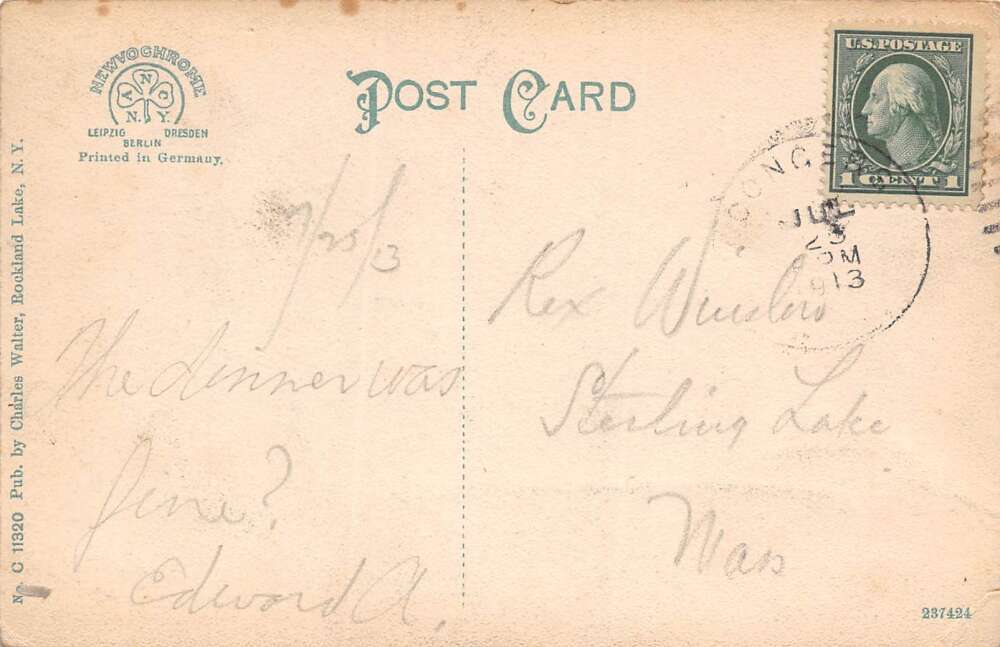 NEWVOCHROME
ANCY
N. Y.
LEIPZIG DRESDEN
BERLIN
Printed in Germany.
POST CARD
U.S. POSTAGE
1 CENT 1
CONC
JUL
23
PM
1913
No. C 11320 Pub. by Charles Walter, Rockland Lake, N. Y.
7/25/13
The dinner was
fine?
Edward A.
Rex Winslow
Sterling Lake
Mass
237424